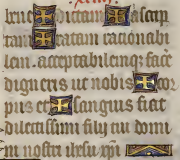 bene✠dictam ✠ ascrip
tam ra✠tam rationabi
lem. acceptabilemq; face
digneris ut nobis ✠ cor
pus et ✠ sanguis fiat
dilectissimi filij tui domi
ni nostri ihesu xpi